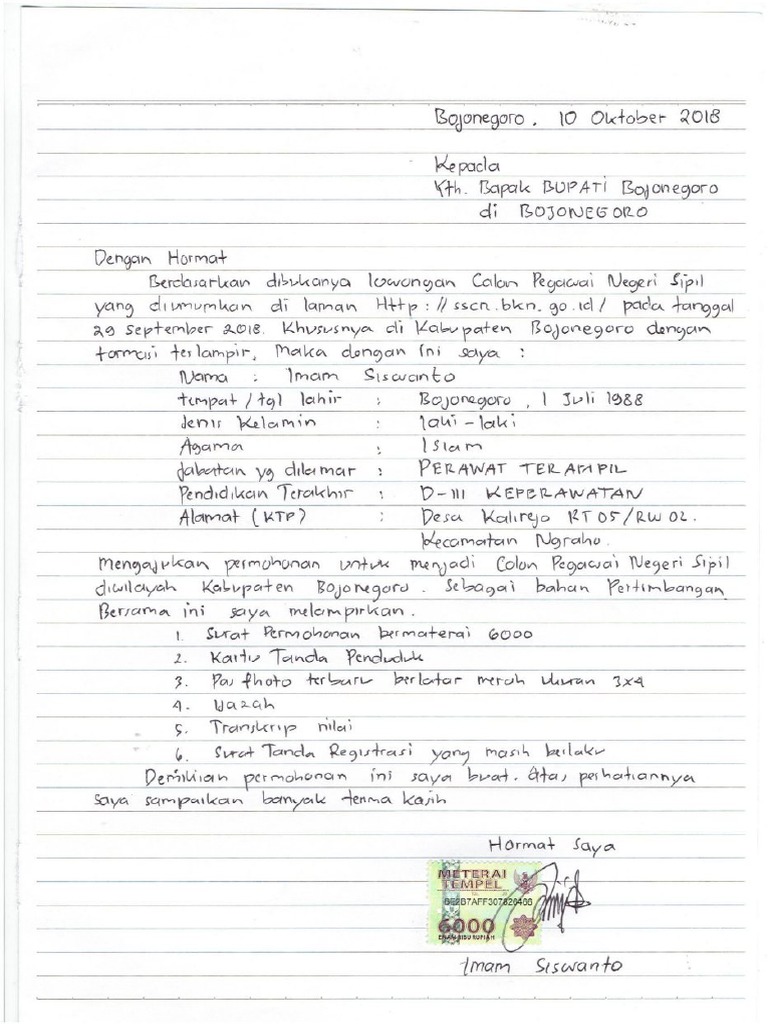 Bojonegoro, 10 Oktober 2018
Kepada
Yth. Bapak BUPATI Bojonegoro
di BOJONEGORO
Dengan Hormat
Berdasarkan dibukanya lowongan Calon Pegawai Negeri Sipil
yang diumumkan di laman Http://sscn.bkn.go.id/ pada tanggal
29 September 2018. Khususnya di Kabupaten Bojonegoro dengan
formasi terlampir, Maka dengan ini saya :
Nama : Imam Siswanto
tempat/tgl lahir : Bojonegoro, 1 Juli 1988
Jenis Kelamin : laki-laki
Agama : Islam
Jabatan yg dilamar : PERAWAT TERAMPIL
Pendidikan Terakhir : D-III KEPERAWATAN
Alamat (KTP) : Desa Kalirejo RT 05/RW 02.
Kecamatan Ngraho.
Mengajukan permohonan untuk menjadi Calon Pegawai Negeri Sipil
diwilayah Kabupaten Bojonegoro. Sebagai bahan Pertimbangan
Bersama ini saya melampirkan.
1. Surat Permohonan bermaterai 6000
2. Kartu Tanda Penduduk
3. Pas Photo terbaru berlatar merah Ukuran 3x4
4. Ijazah
5. Transkrip nilai
6. Surat Tanda Registrasi yang masih berlaku
Demikian permohonan ini saya buat. Atas perhatiannya
saya sampaikan banyak terima kasih
Hormat Saya
METERAI
TEMPEL
6000
ENAM RIBU RUPIAH
Imam Siswanto